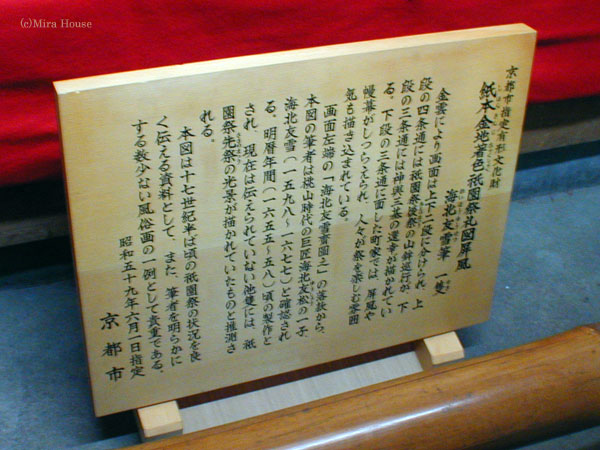 (c)Mira House
京都市指定有形文化財
紙本金地著色祇園祭礼図屏風
海北友雪筆 一隻
金雲により画面は上下二段に分けられ、上
段の四条通には祇園祭後祭の山鉾巡行が、下
段の三条通には神輿三基の還幸が描かれてい
る。下段の三条通に面した町家では、屏風や
幔幕がしつらえられ、人々が祭を楽しむ雰囲
気も描き込まれている。
画面左端の「海北友雪賣圖之」の落款から、
本図の筆者は桃山時代の巨匠海北友松の一子、
海北友雪(一五九八〜一六七七)と確認され
る。明暦年間(一六五五〜五八)頃の製作と
され、現在は伝えられていない池隻には、祇
園祭先祭の光景が描かれていたものと推測さ
れる。
本図は十七世紀半ば頃の祇園祭の状況を良
く伝える資料として、また、筆者を明らかに
する数少ない風俗画の一例として貴重である。
昭和五十九年六月一日指定
京都市